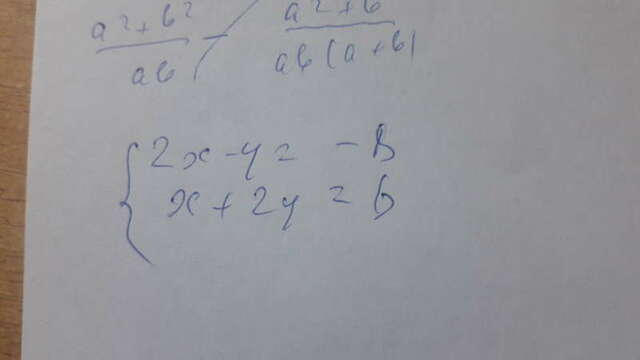 a²+b² / ab
a²+b / ab(a+b)
{ 2x - y = -8
x + 2y = 6